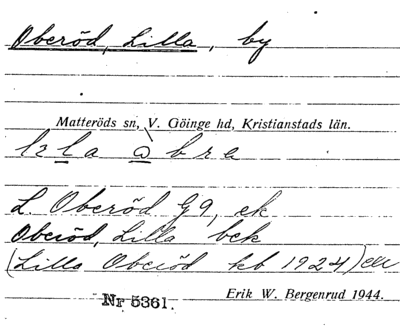 Oberöd, Lilla, by
Matteröds sn, V. Göinge hd, Kristianstads län.
L. Oberöd G9, ek
Oberöd, Lilla bek
(Lilla Oberöd kb 1924) ek
Nr 5361.
Erik W. Bergenrud 1944.